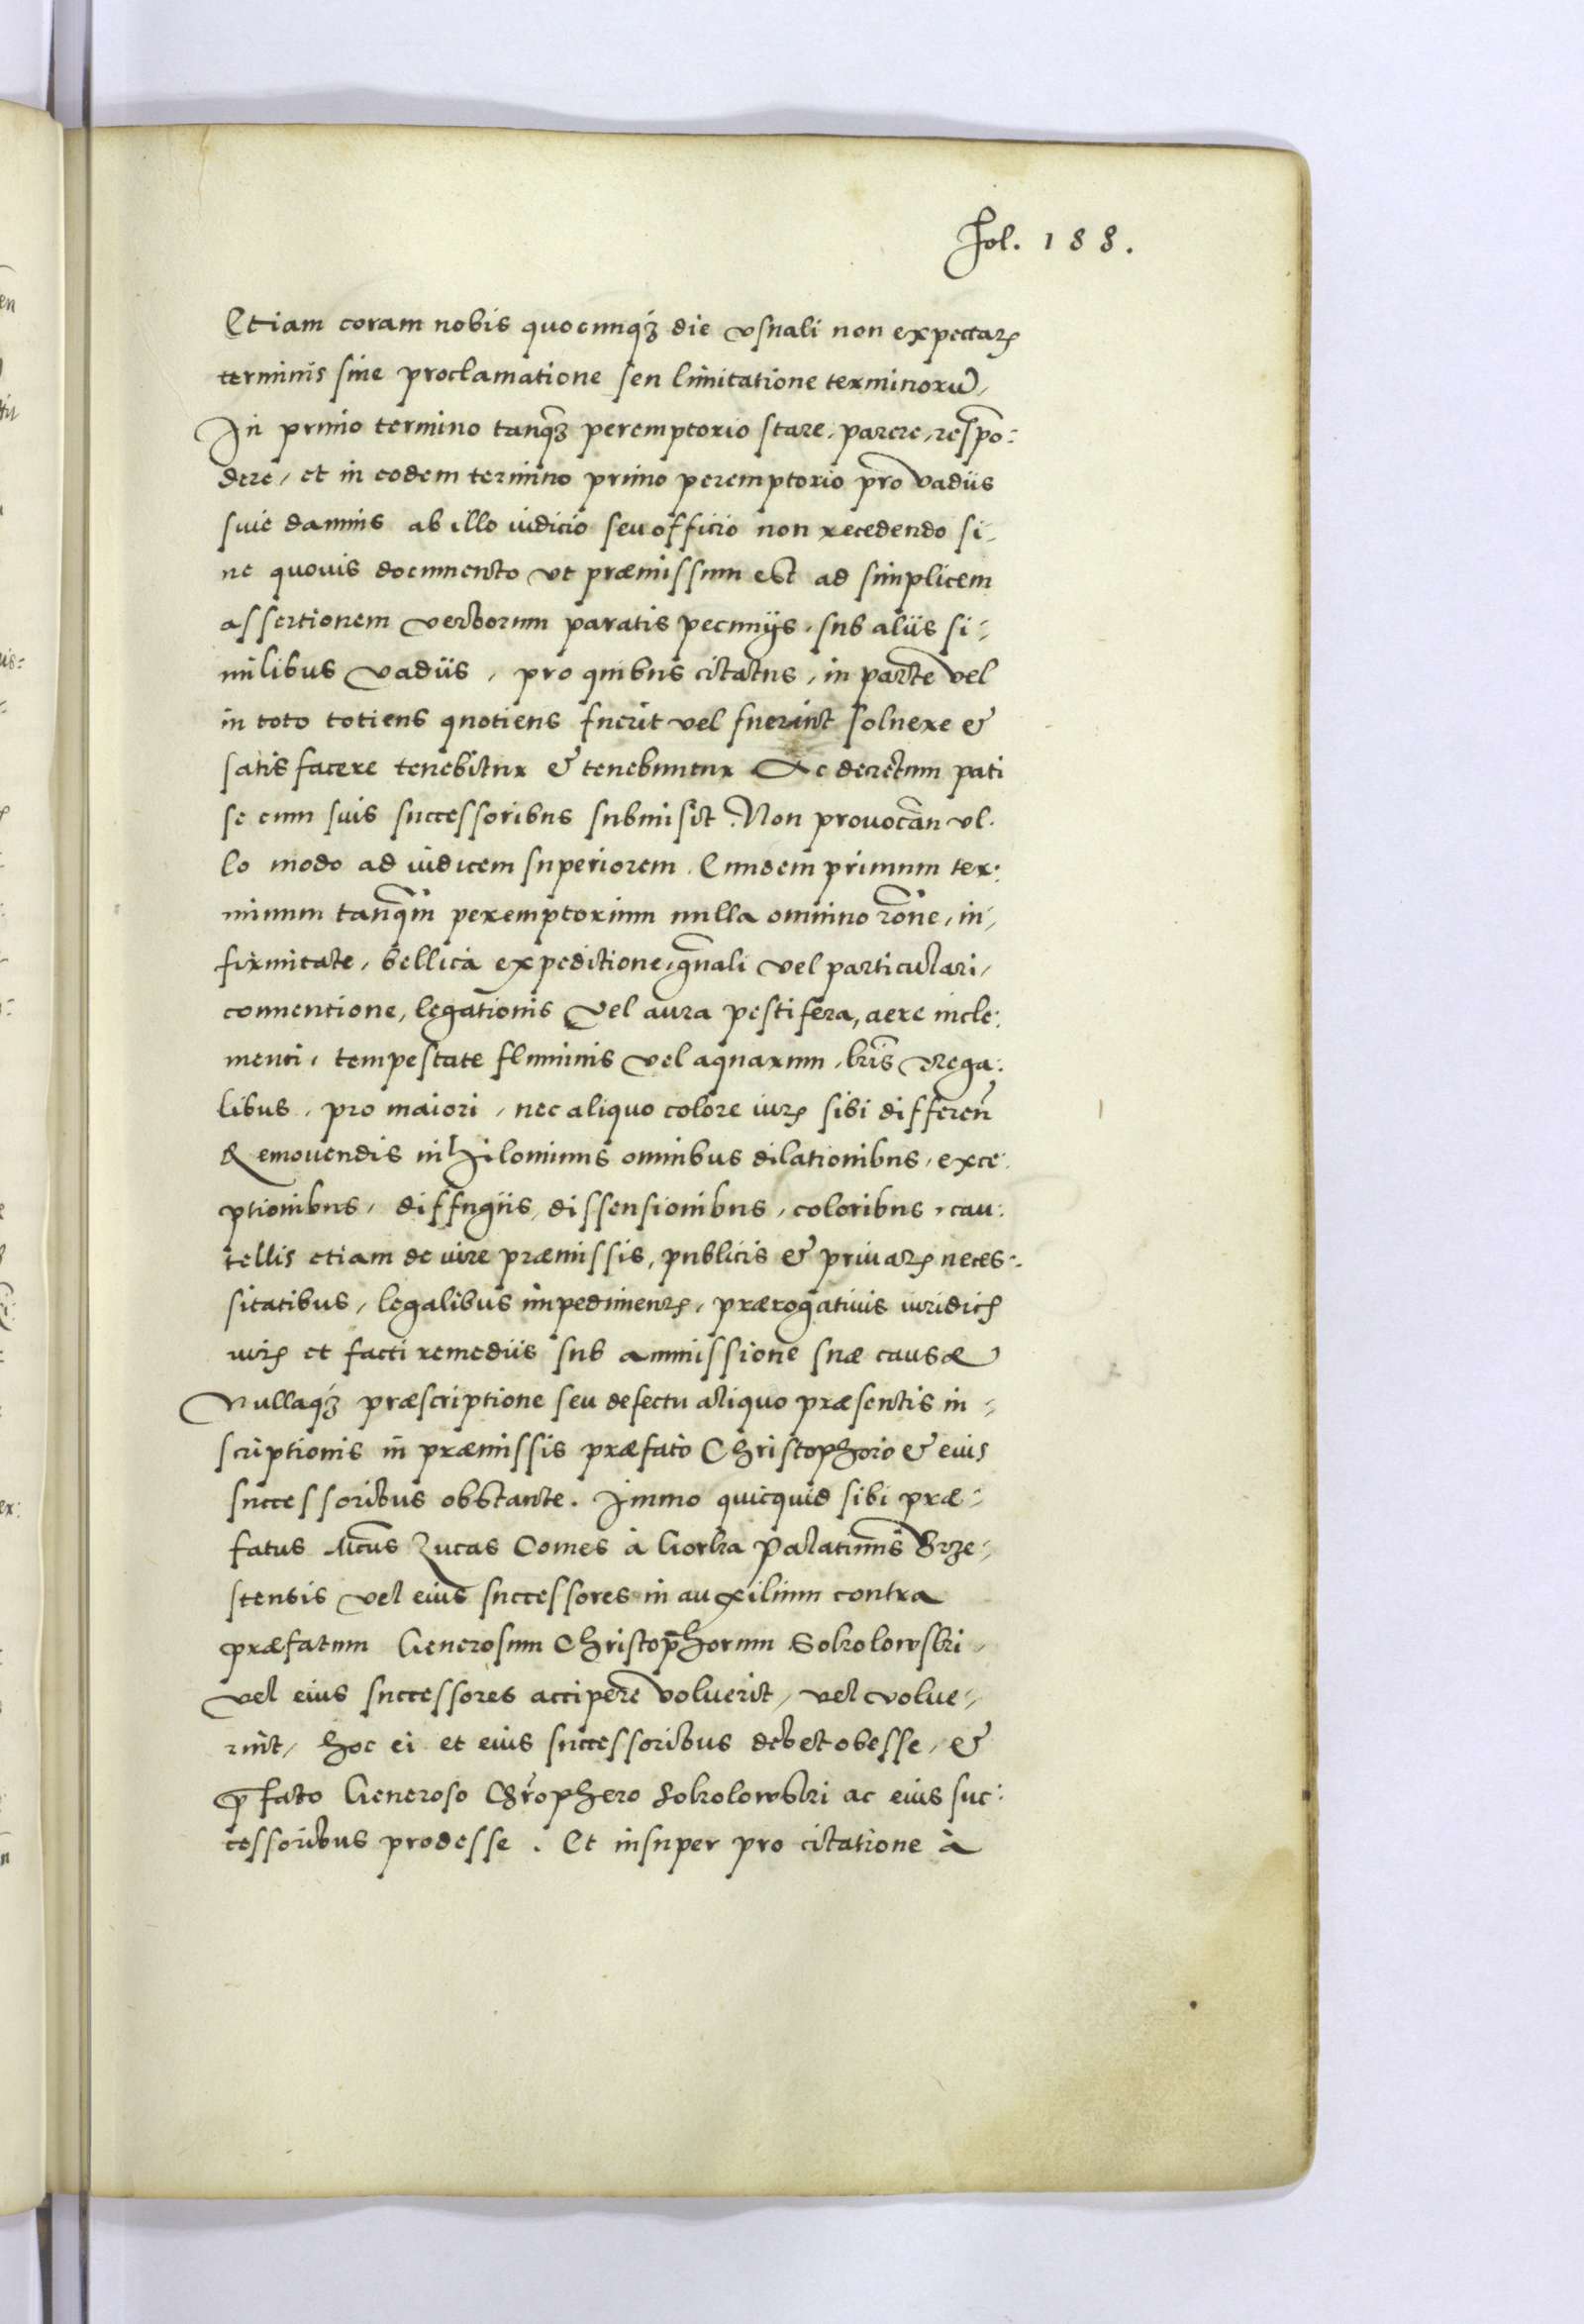 Fol. 188.
Etiam coram nobis quocunqȝ die vsuali non expectatꝭ
terminis sine proclamatione seu limitatione terminorū,
In primo termino tanqȝ peremptorio stare, parere, respō:
dere, et in eodem termino primo peremptorio pro vadiis
siue damnis ab illo iudicio seu officio non recedendo si,
ne quouis documento vt præmissum est ad simplicem
assertionem verborum paratis pecunijs, sub aliis si:
milibus vadiis, pro quibus citatus, in parte vel
in toto totiens quotiens fuerit vel fuerint soluere &
satisfacere tenebitur & tenebuntur Ac decretum pati
se cum suis successoribus submisit. Non prouocān vl.
lo modo ad iudicem superiorem. Eundem primum ter:
minum tanq̄m peremptorium nulla omnino rōne, in,
firmitate, bellica expeditione, gn̄ali vel particulari,
conuentione, legationis vel aura pestifera, aere incle:
menti, tempestate fluminis vel aquarum, lr̄is Rega:
libus, pro maiori, nec aliquo colore iurꝭ sibi differen̄
Remouendis nihilominus omnibus dilationibus, exce:
ptionibus, diffugiis, dissensionibus, coloribus, cau:
tellis etiam de iure præmissis, publicis & priuatꝭ neces:
sitatibus, legalibus impedimentꝭ, prærogatiuis iuridicꝭ
iurꝭ et facti remediis sub ammissione suæ causæ
Nullaqȝ præscriptione seu defectu aliquo præsentis in:
scriptionis in præmissis præfato Christophoro & eius
successoribus obstante. Immo quicquid sibi præ:
fatus Mcūs Lucas Comes à Gorka Palatinus Brze:
stensis vel eius successores in auxilium contra
præfatum Generosum Christophorum Sokolowski,
vel eius successores accipere voluerit, vel volue:
rint, hoc ei et eius successoribus debet obesse, &
p̄fato Generoso Chr̄ophero Sokolowski ac eius suc:
cessoribus prodesse. Et insuper pro citatione à